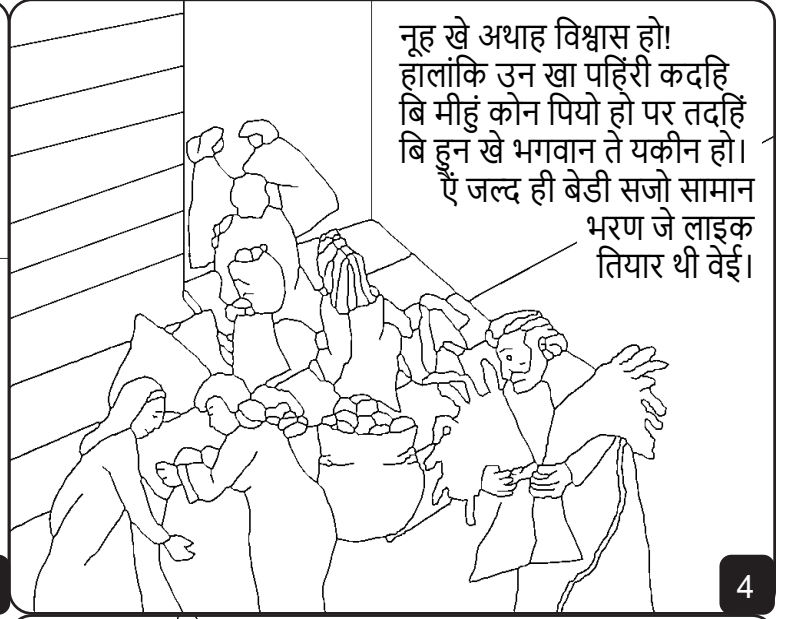 नूह खे अथाह विश्वास हो!
हालांकि उन खा पहिंरी कदहि
बि मीहुं कोन पियो हो पर तदहिं
बि हुन खे भगवान ते यकीन हो।
ऐं जल्द ही बेडी सजो सामान
भरण जे लाइक
तियार थी वेई।
4